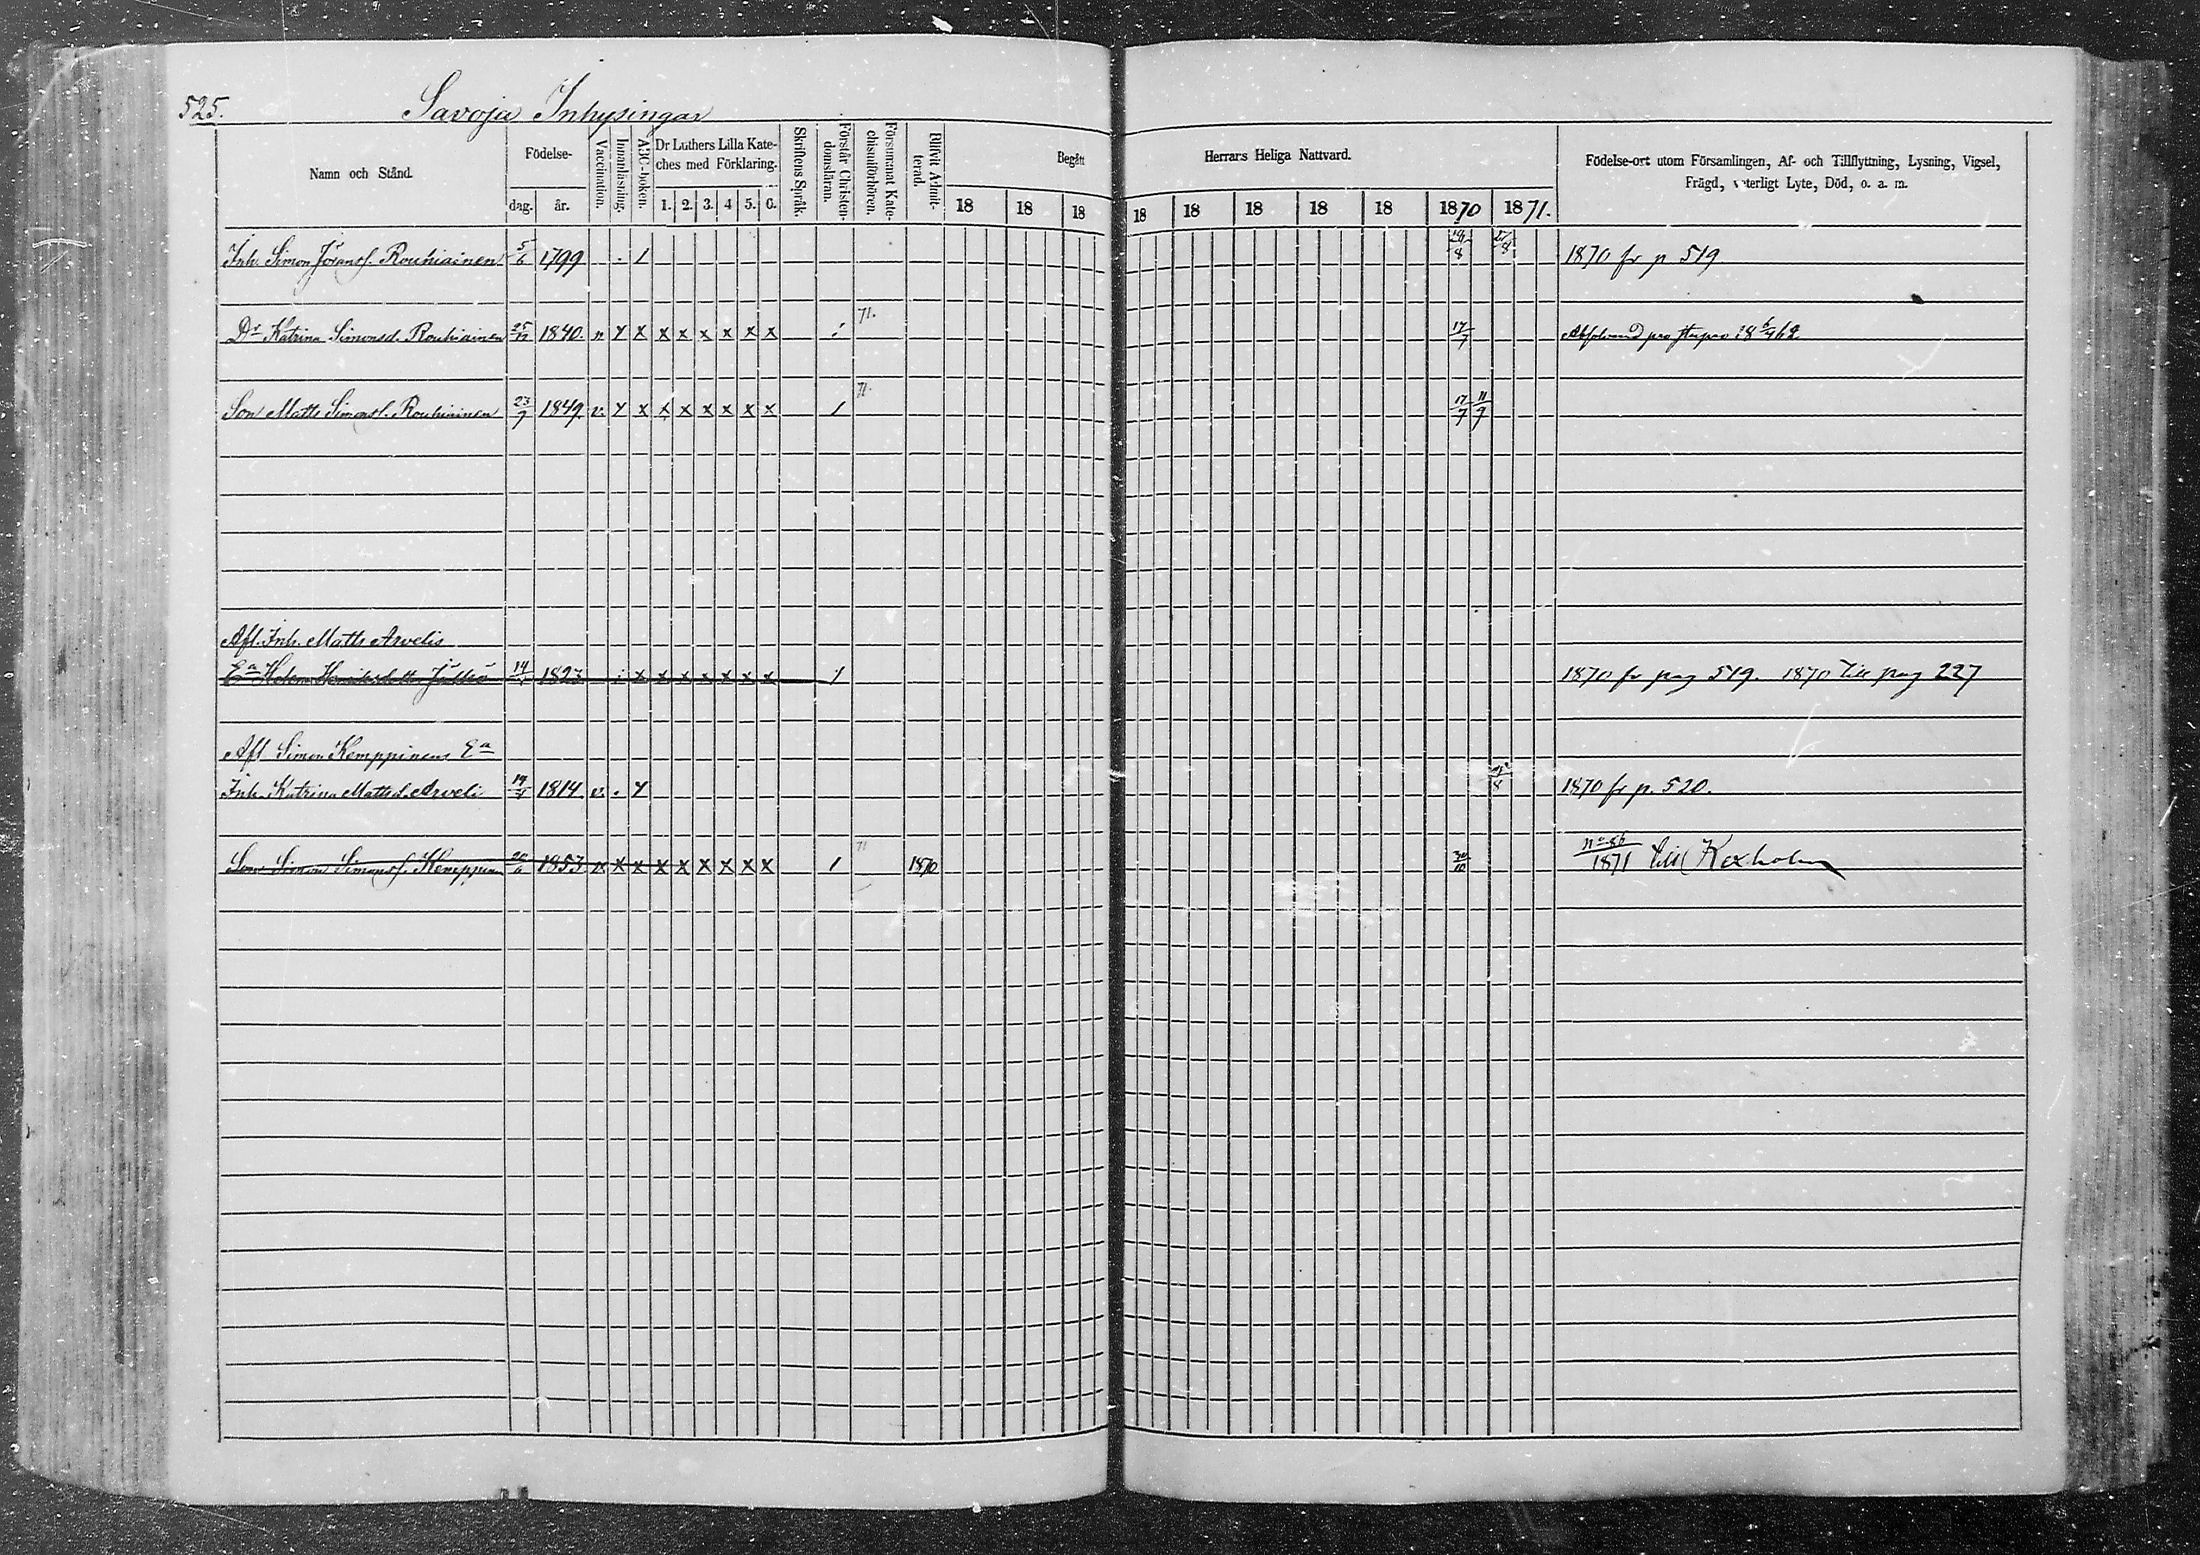 525. Savoja Inhysingar
Namn och Stånd. Födelse- dag. år. Vaccination. Innanläsning. ABC-boken. Dr Luthers Lilla Kateches med Förklaring. 1. 2. 3. 4 5. 6. Skriftens Språk. Förstår Christendomsläran. Försummat Katechismiförhören. Blifvit Admitterad. Begått 18 18 18
Herrans Heliga Nattvard. 18 18 18 18 18 1870 1871. Födelse-ort utom Församlingen, Af- och Tillflyttning, Lysning, Vigsel, Frägd, veterligt Lyte, Död, o. a. m.
Inh. Simon Jöransf. Rouhiainen 5/6 1799 . 1 8 1870 fr p 519
71.
Dr Katrina Simonsd. Rouhiainen 1840. v Y x x x x x x x 17/7 pro 18
71.
Son Matts Simonsf. Rouhiainen 23/7 1849 v. Y x x x x x x x 1 17/7 11/9
Afl. Inh. Matts Arvelis
Ea Helena Henriksdotter 14 1823 x x x x x x x 1 1870 fr pag 519. 1870 till pag 227
Afl Simon Kemppinens Ea
Inh. Katrina Mattsd. Arveli 1814 v. . Y 8 1870 fr p. 520.
71
Son Simon Simonsf. Kemppinen 1853 v. x x x x x x x x 1 1870 30/10 no 86/1871 till Kexholm